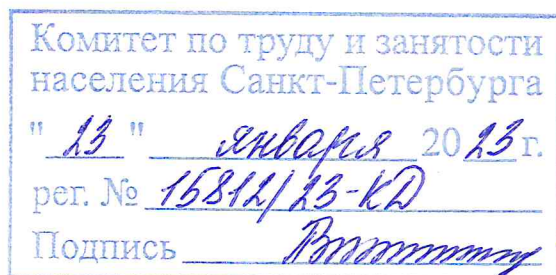 Комитет по труду и занятости
населения Санкт-Петербурга
" 23 " января 2023 г.
рег. № 15812/23-КД
Подпись